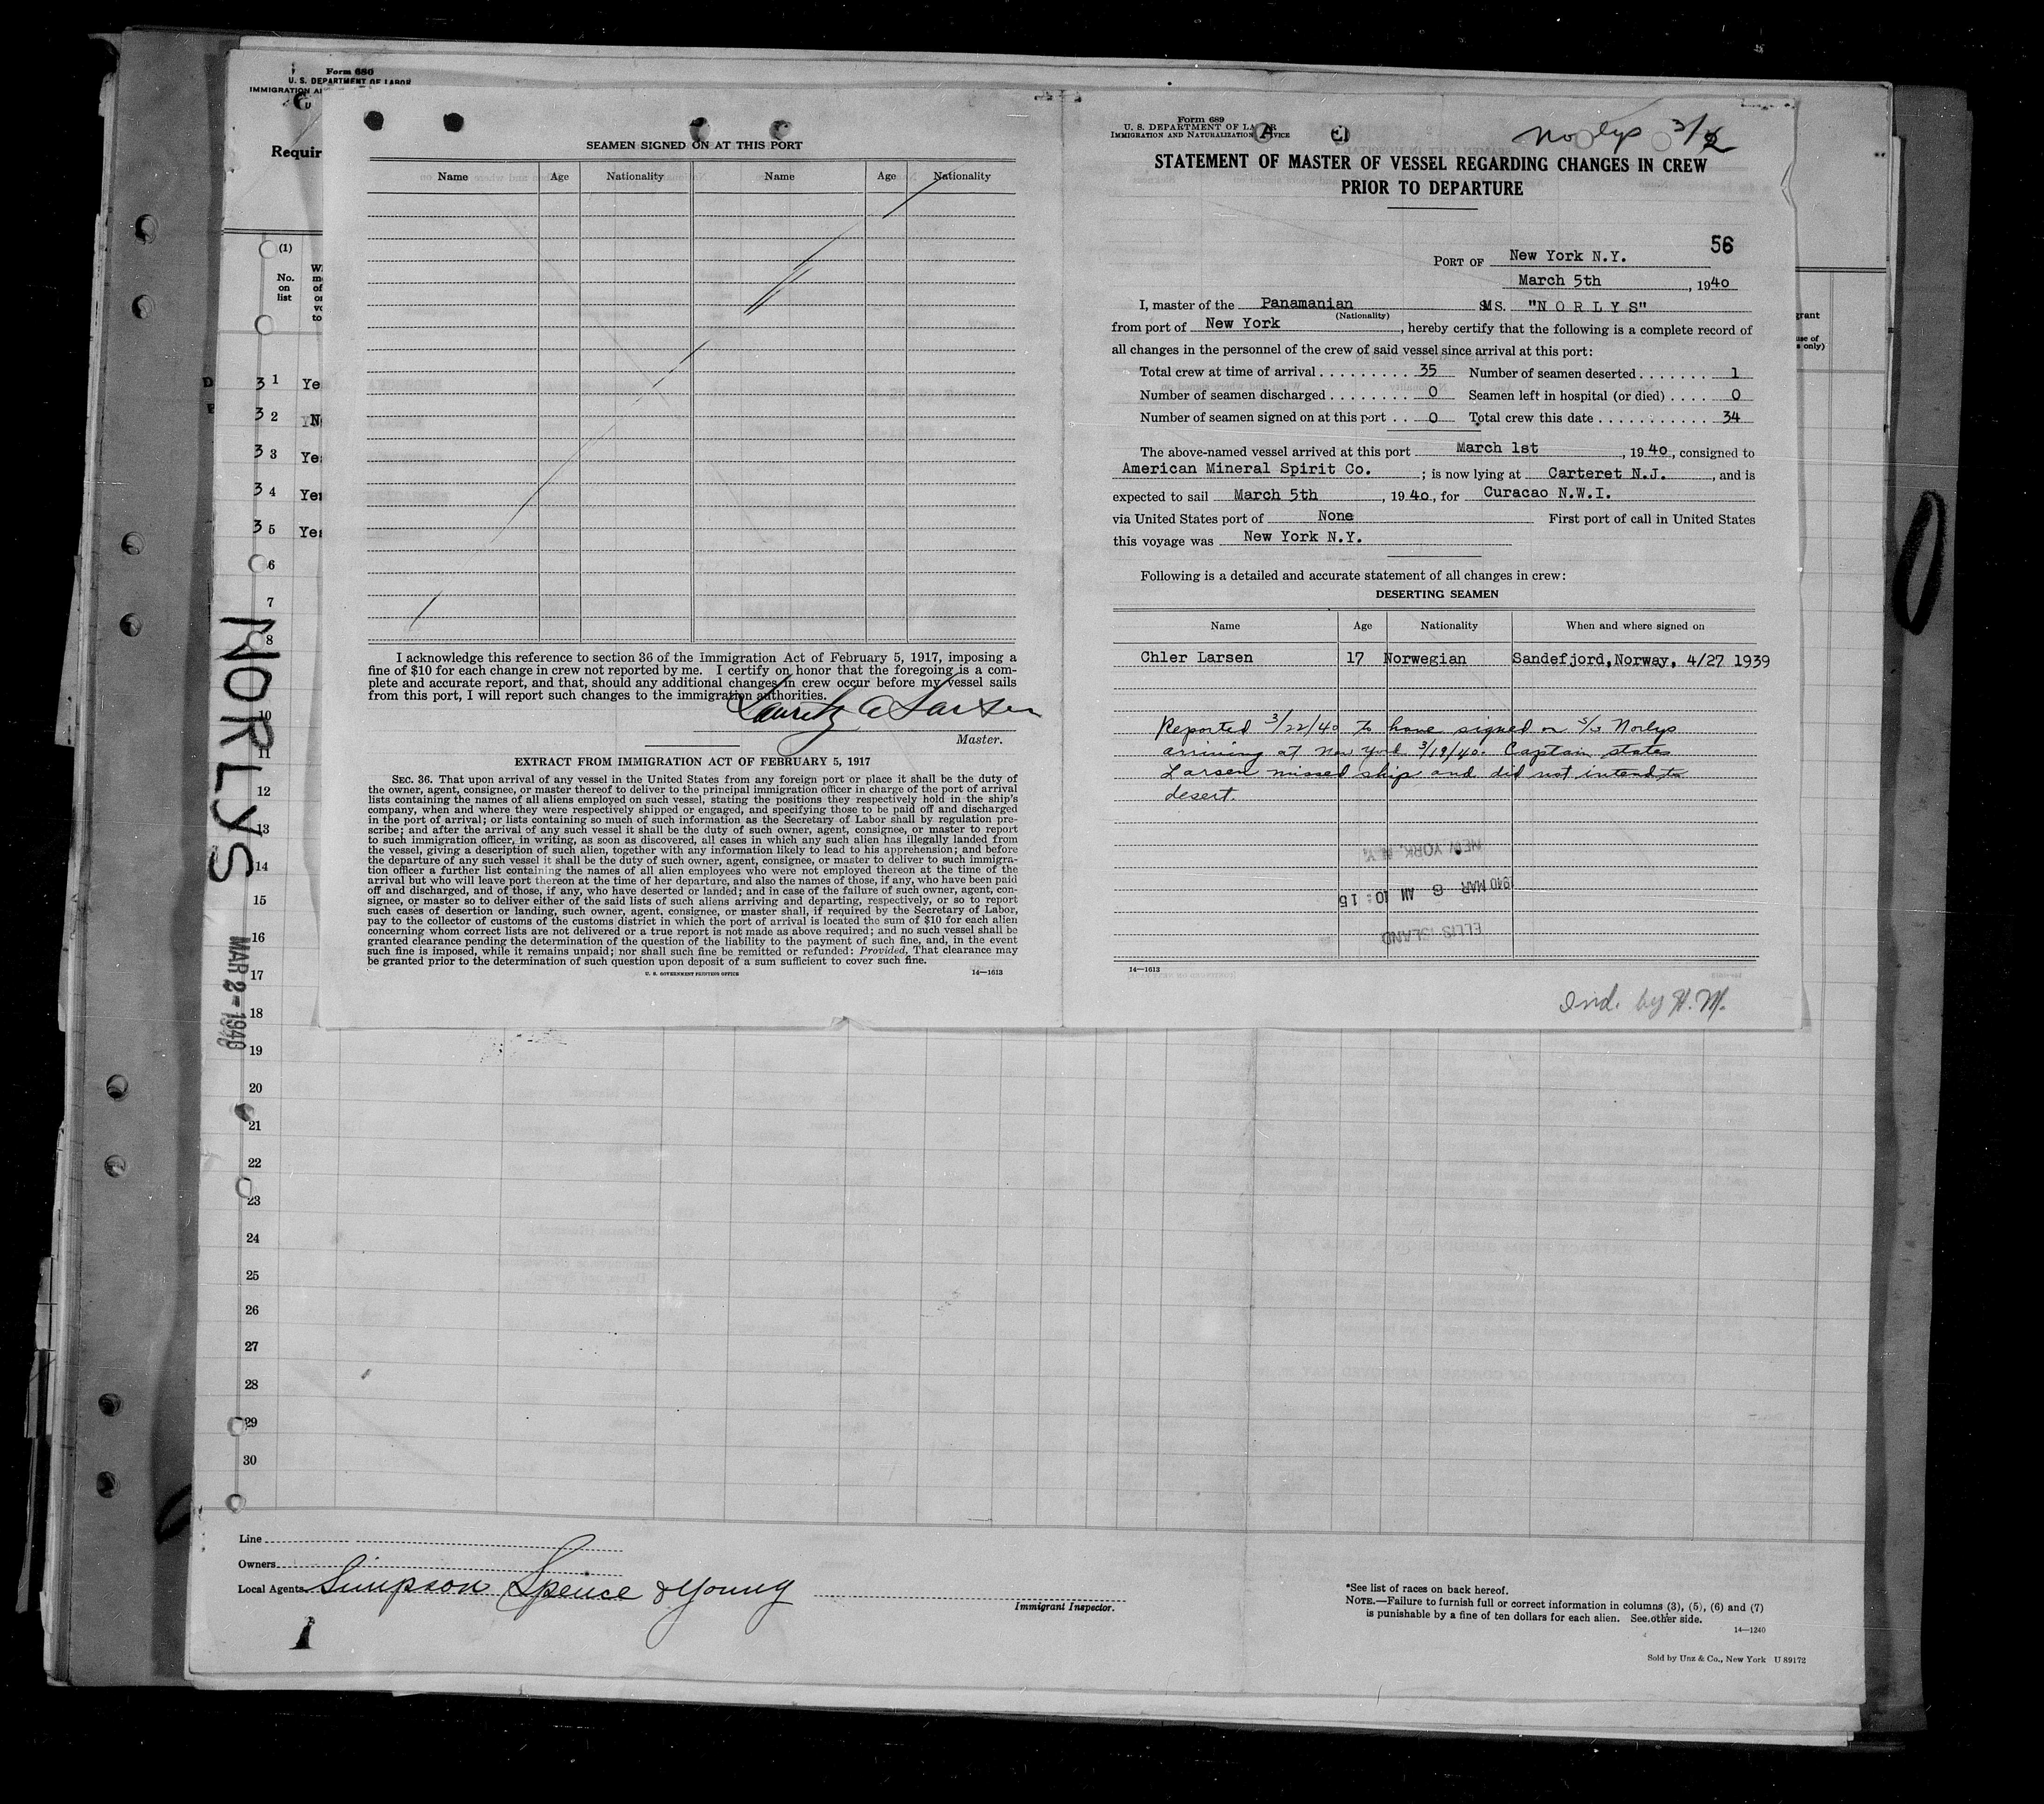 Form 680
U. S. DEPARTMENT OF LABOR
IMMIGRATION
Requir
(1)
No.
on
list
grant
use of
s only)
3 1 Ye
3 2 N
3 3 Ye
3 4 Yes
3 5 Yes
6
7
8
10
11
12
13
14
15
16
17
18
19
20
21
22
23
24
25
26
27
28
29
30
NORLYS
MAR 2 - 1940
SEAMEN SIGNED ON AT THIS PORT
Name Age Nationality Name Age Nationality
I acknowledge this reference to section 36 of the Immigration Act of February 5, 1917, imposing a
fine of $10 for each change in crew not reported by me. I certify on honor that the foregoing is a com-
plete and accurate report, and that, should any additional changes in crew occur before my vessel sails
from this port, I will report such changes to the immigration authorities.
Lauritz A Larsen
Master.
EXTRACT FROM IMMIGRATION ACT OF FEBRUARY 5, 1917
SEC. 36. That upon arrival of any vessel in the United States from any foreign port or place it shall be the duty of
the owner, agent, consignee, or master thereof to deliver to the principal immigration officer in charge of the port of arrival
lists containing the names of all aliens employed on such vessel, stating the positions they respectively hold in the ship's
company, when and where they were respectively shipped or engaged, and specifying those to be paid off and discharged
in the port of arrival; or lists containing so much of such information as the Secretary of Labor shall by regulation pre-
scribe; and after the arrival of any such vessel it shall be the duty of such owner, agent, consignee, or master to report
to such immigration officer, in writing, as soon as discovered, all cases in which any such alien has illegally landed from
the vessel, giving a description of such alien, together with any information likely to lead to his apprehension; and before
the departure of any such vessel it shall be the duty of such owner, agent, consignee, or master to deliver to such immigra-
tion officer a further list containing the names of all alien employees who were not employed thereon at the time of the
arrival but who will leave port thereon at the time of her departure, and also the names of those, if any, who have been paid
off and discharged, and of those, if any, who have deserted or landed; and in case of the failure of such owner, agent, con-
signee, or master so to deliver either of the said lists of such aliens arriving and departing, respectively, or so to report
such cases of desertion or landing, such owner, agent, consignee, or master shall, if required by the Secretary of Labor,
pay to the collector of customs of the customs district in which the port of arrival is located the sum of $10 for each alien
concerning whom correct lists are not delivered or a true report is not made as above required; and no such vessel shall be
granted clearance pending the determination of the question of the liability to the payment of such fine, and, in the event
such fine is imposed, while it remains unpaid; nor shall such fine be remitted or refunded: Provided, That clearance may
be granted prior to the determination of such question upon deposit of a sum sufficient to cover such fine.
U. S. GOVERNMENT PRINTING OFFICE 14—1613
Form 689
U. S. DEPARTMENT OF LABOR
IMMIGRATION AND NATURALIZATION SERVICE
Norlys 3/2
STATEMENT OF MASTER OF VESSEL REGARDING CHANGES IN CREW
PRIOR TO DEPARTURE
56
PORT OF New York N.Y.
March 5th, 1940
I, master of the Panamanian MS. "N O R L Y S"
(Nationality)
from port of New York, hereby certify that the following is a complete record of
all changes in the personnel of the crew of said vessel since arrival at this port:
Total crew at time of arrival . . . . . . . . . 35 Number of seamen deserted . . . . . . . 1
Number of seamen discharged . . . . . . . . 0 Seamen left in hospital (or died) . . . . 0
Number of seamen signed on at this port . . 0 Total crew this date . . . . . . . . . . . 34
The above-named vessel arrived at this port March 1st, 1940, consigned to
American Mineral Spirit Co.; is now lying at Carteret N.J., and is
expected to sail March 5th, 1940, for Curacao N.W.I.
via United States port of None First port of call in United States
this voyage was New York N.Y.
Following is a detailed and accurate statement of all changes in crew:
DESERTING SEAMEN
Name Age Nationality When and where signed on
Chler Larsen 17 Norwegian Sandefjord,Norway, 4/27 1939
Reported 3/22/40 to have signed on S/S Norlys
arriving at New York 3/19/40. Captain states
Larsen missed ship and did not intend to
desert.
NEW YORK, N.Y.
1940 MAR 6 AM 10:15
ELLIS ISLAND
14—1613
Ind. by H.M.
Line
Owners
Local Agents Simpson Spence & Young
Immigrant Inspector.
*See list of races on back hereof.
NOTE.—Failure to furnish full or correct information in columns (3), (5), (6) and (7)
is punishable by a fine of ten dollars for each alien. See other side.
14—1240
Sold by Unz & Co., New York U 89172